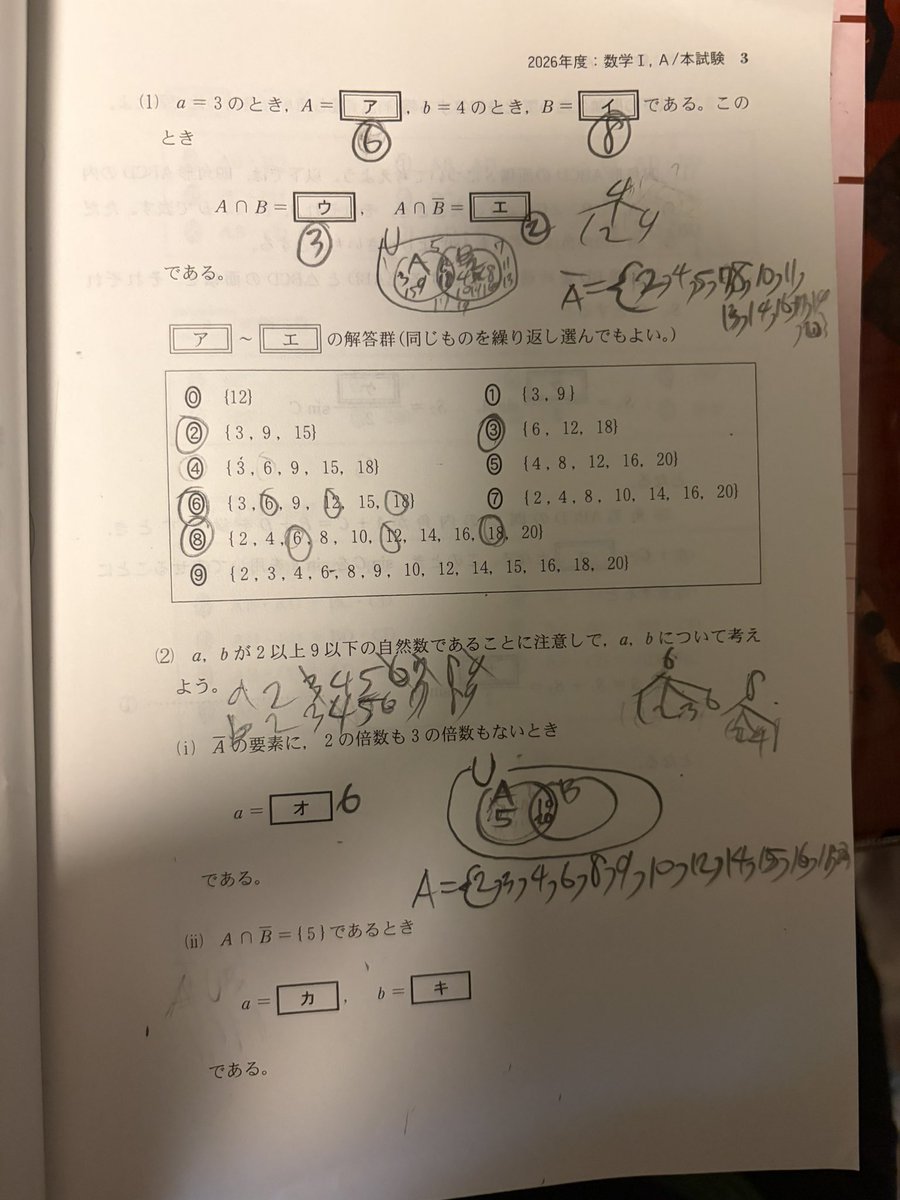 2026年度：数学Ⅰ, A/本試験 3
(1) a＝3のとき, A＝ ア , b＝4のとき, B＝ イ である。この
⑥ ⑧
とき
A∩B＝ ウ , A∩B̅＝ エ
③ ②
である。
U A B
4
1 2 4
A̅＝{2,4,5,7,8,10,11,
13,14,16,17,19
,20}
ア ～ エ の解答群(同じものを繰り返し選んでもよい。)
⓪ {12} ① {3, 9}
② {3, 9, 15} ③ {6, 12, 18}
④ {3, 6, 9, 15, 18} ⑤ {4, 8, 12, 16, 20}
⑥ {3, 6, 9, 12, 15, 18} ⑦ {2, 4, 8, 10, 14, 16, 20}
⑧ {2, 4, 6, 8, 10, 12, 14, 16, 18, 20}
⑨ {2, 3, 4, 6, 8, 9, 10, 12, 14, 15, 16, 18, 20}
(2) a, bが2以上9以下の自然数であることに注意して, a, bについて考え
よう。
a 2 3 4 5 6 7 8 9
b 2 3 4 5 6 7 8 9
6
1 2 3 6
8
(i) A̅の要素に, 2の倍数も3の倍数もないとき
a＝ オ 6
U A B
5 10
である。
A={2,3,4,6,8,9,10,12,14,15,16,18,20
(ii) A∩B̅＝{5}であるとき
a＝ カ , b＝ キ
である。